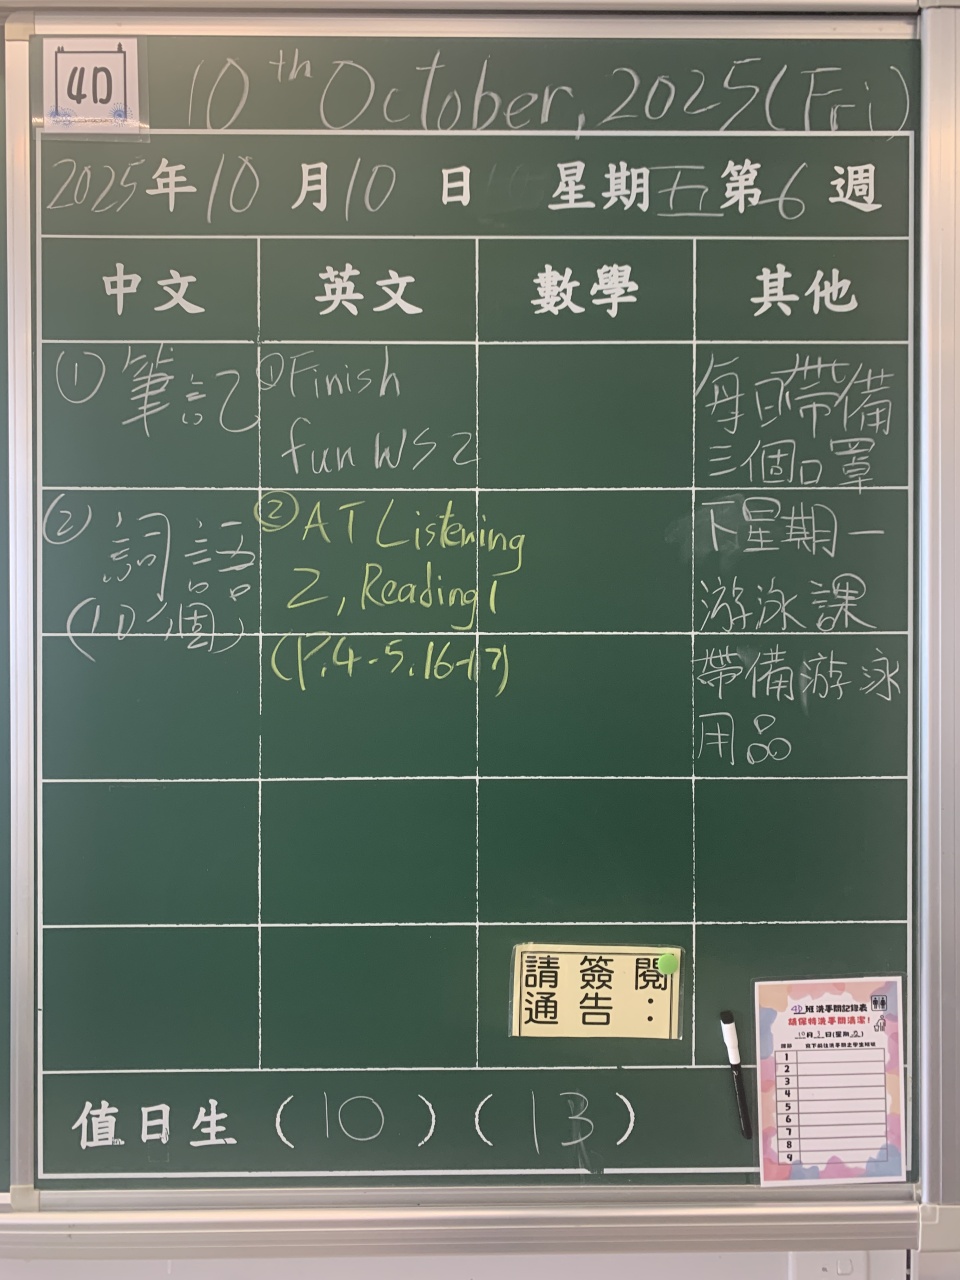 4D
10th October, 2025 (Fri)
2025年10月10日 星期五第6週
中文 英文 數學 其他
① 筆記
① Finish
fun WS 2
每日帶備
三個口罩
② 詞語
(10個)
② AT Listening
2, Reading 1
(P.4-5, 16-17)
下星期一
游泳課
帶備游泳
用品
請簽閱
通告：
4D班洗手間記錄表
請保持洗手間清潔！
1
2
3
4
5
6
7
8
9
值日生 (10) (13)